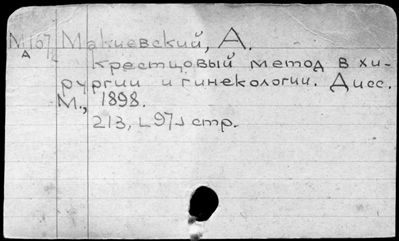 М 167 Макиевский, А.
А
Крестцовый метод в хи-
рургии и гинекологии. Дисс.
М., 1898.
213, [97] стр.